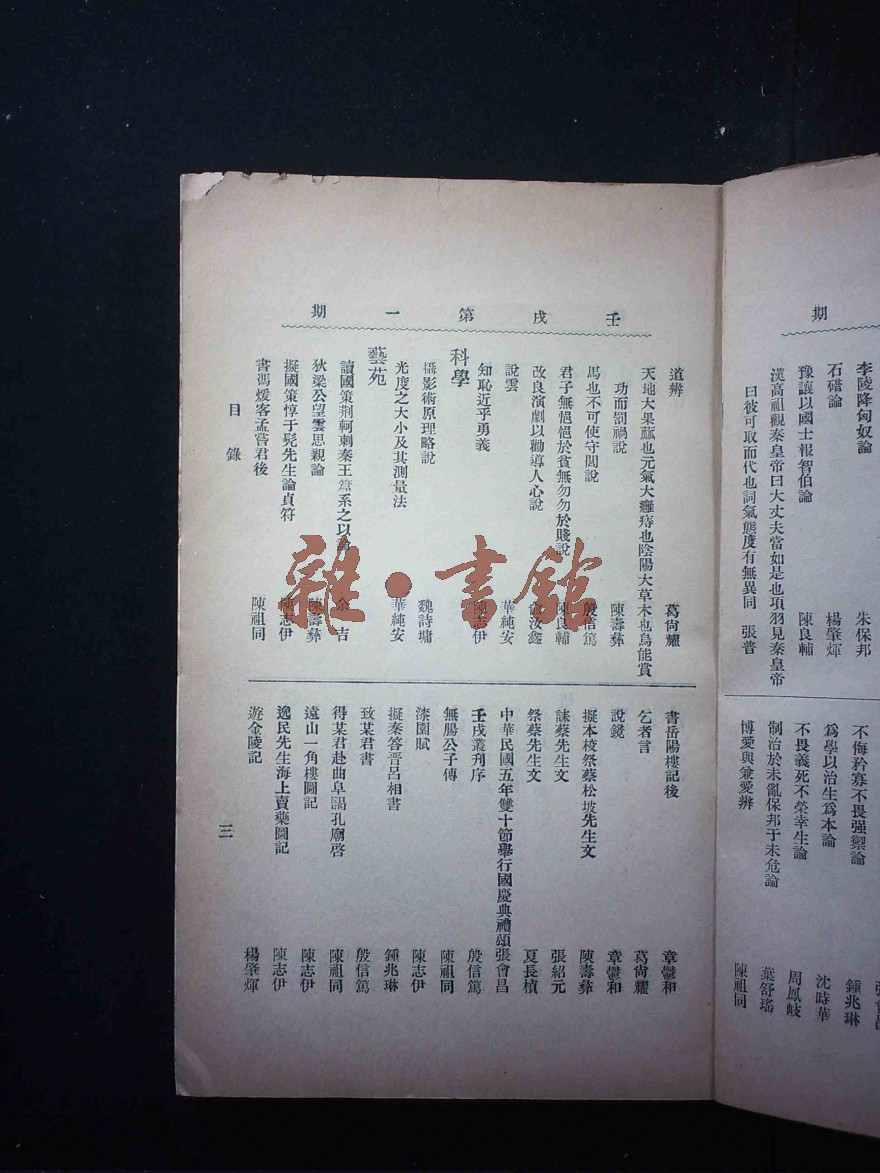 期
李陵降匈奴論
石碏論
豫讓以國士報智伯論
漢高祖觀秦皇帝曰大丈夫當如是也項羽見秦皇帝
曰彼可取而代也詞氣態度有無異同 張普
朱保邦
楊肇煇
陳良輔
不侮矜寡不畏强禦論
爲學以治生爲本論
不畏義死不榮幸生論
制治於未亂保邦于未危論
博愛與兼愛辨
鍾兆琳
沈時華
周鳳岐
葉舒瑤
陳祖同
壬戌第一期
道辨 葛尙耀
天地大果蓏也元氣大癰痔也陰陽大草木也烏能賞
功而罰禍說 陳壽彝
馬也不可使守閭說 殷信篤
君子無悒悒於貧無勿勿於賤說 陳良輔
改良演劇以勸導人心說 汝鑫
說雲 華純安
知恥近乎勇義 陳志伊
科學
攝影術原理略說 魏詩墉
光度之大小及其測量法 華純安
藝苑
讀國策荆軻刺秦王篇系之以論 余吉
狄梁公望雲思親論 陳壽彝
擬國策惇于髡先生論貞符 陳志伊
書馮煖客孟嘗君後 陳祖同
書岳陽樓記後 章鬱和
乞者言 葛尙耀
說鏡 章鬱和
擬本校祭蔡松坡先生文 陳壽彝
誄蔡先生文 張紹元
祭蔡先生文 夏長楨
中華民國五年雙十節舉行國慶典禮頌 張會昌
壬戌叢刊序 殷信篤
無腸公子傳 陳祖同
漆園賦 陳志伊
擬秦答晋呂相書 鍾兆琳
致某君書 殷信篤
得某君赴曲阜謁孔廟啓 陳祖同
遠山一角樓圖記 陳志伊
逸民先生海上賣藥圖記 陳志伊
遊金陵記 楊肇煇
目錄
三
雜·書館